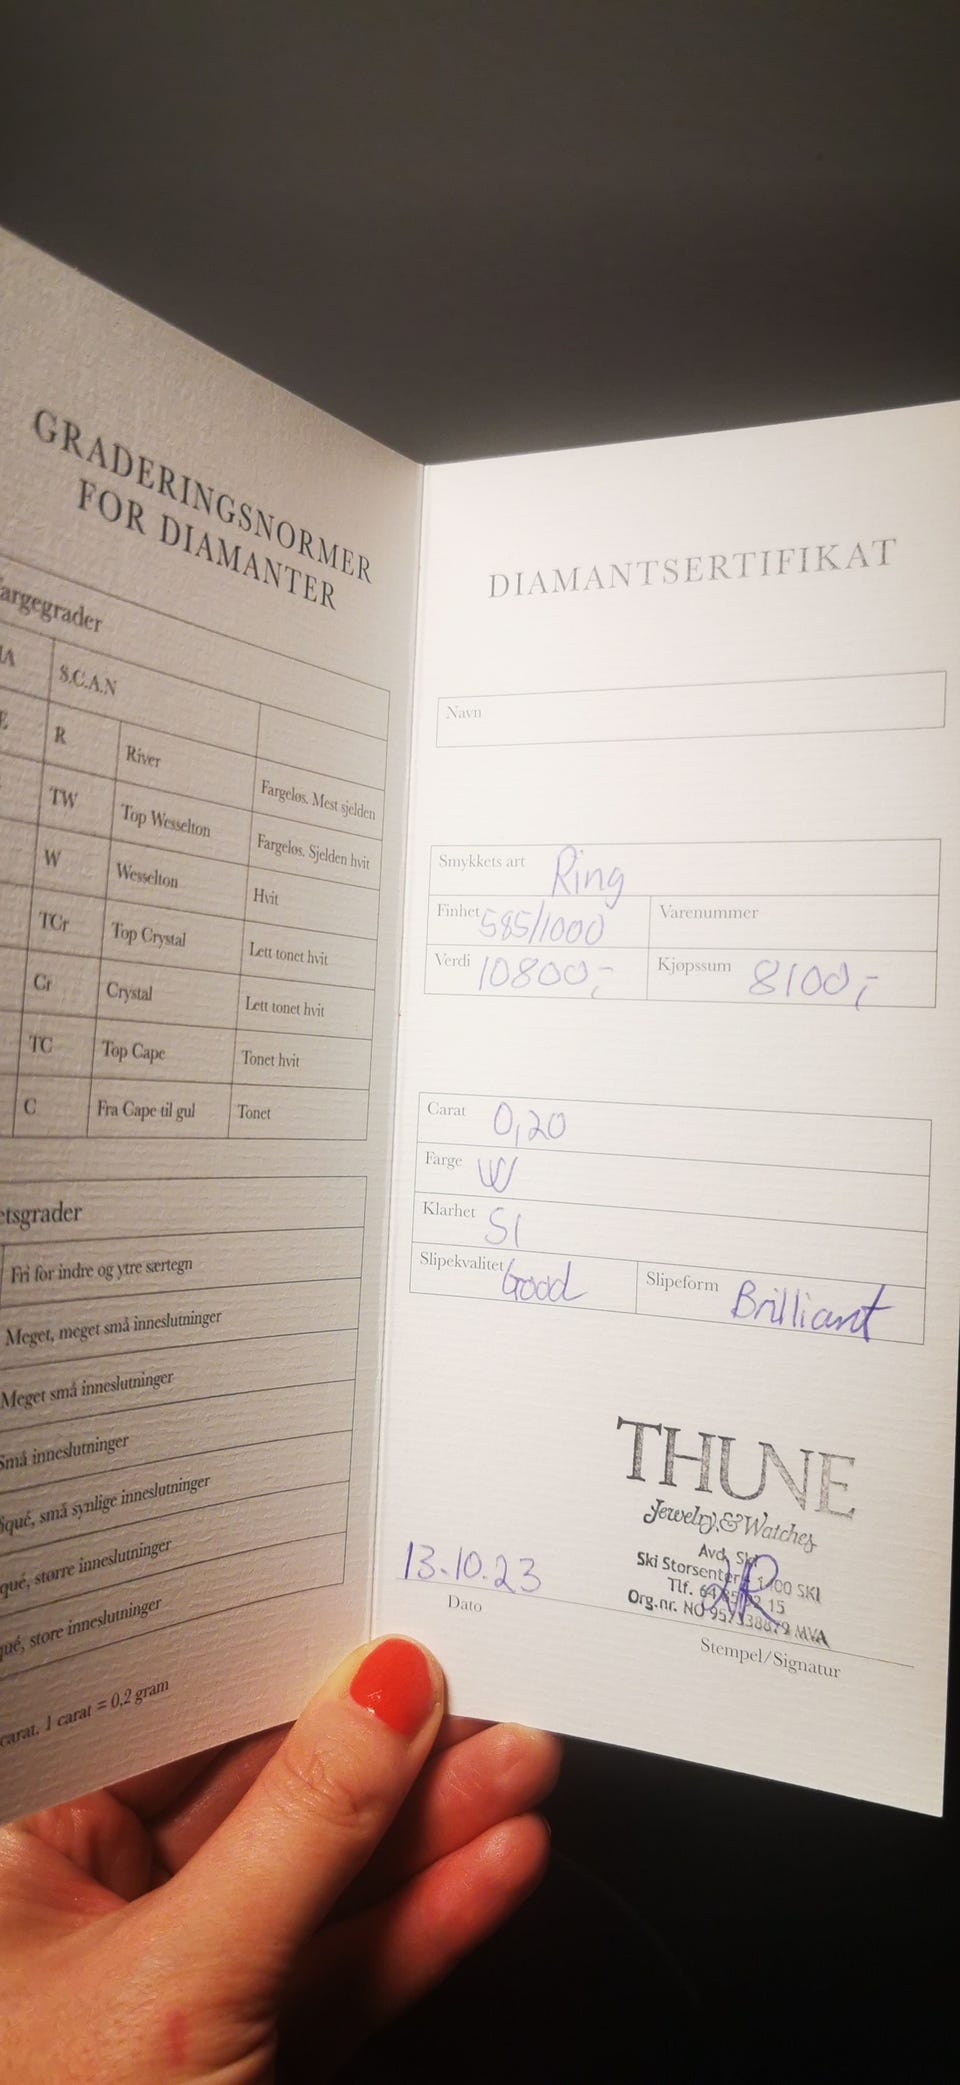 GRADERINGSNORMER
FOR DIAMANTER
argegrader
S.C.A.N
R River Fargeløs. Mest sjelden
TW Top Wesselton Fargeløs. Sjelden hvit
W Wesselton Hvit
TCr Top Crystal Lett tonet hvit
Cr Crystal Lett tonet hvit
TC Top Cape Tonet hvit
C Fra Cape til gul Tonet
etsgrader
Fri for indre og ytre særtegn
Meget, meget små inneslutninger
Meget små inneslutninger
Små inneslutninger
qué, små synlige inneslutninger
qué, større inneslutninger
ué, store inneslutninger
carat. 1 carat = 0,2 gram
DIAMANTSERTIFIKAT
Navn
Smykkets art Ring
Finhet 585/1000 Varenummer
Verdi 10800,- Kjøpssum 8100,-
Carat 0,20
Farge W
Klarhet SI
Slipekvalitet Good Slipeform Brilliant
THUNE
Jewelry & Watches
Avd. Ski
Ski Storsenter 1400 SKI
Tlf. 15
Org.nr. NO MVA
13.10.23
Dato
Stempel/Signatur